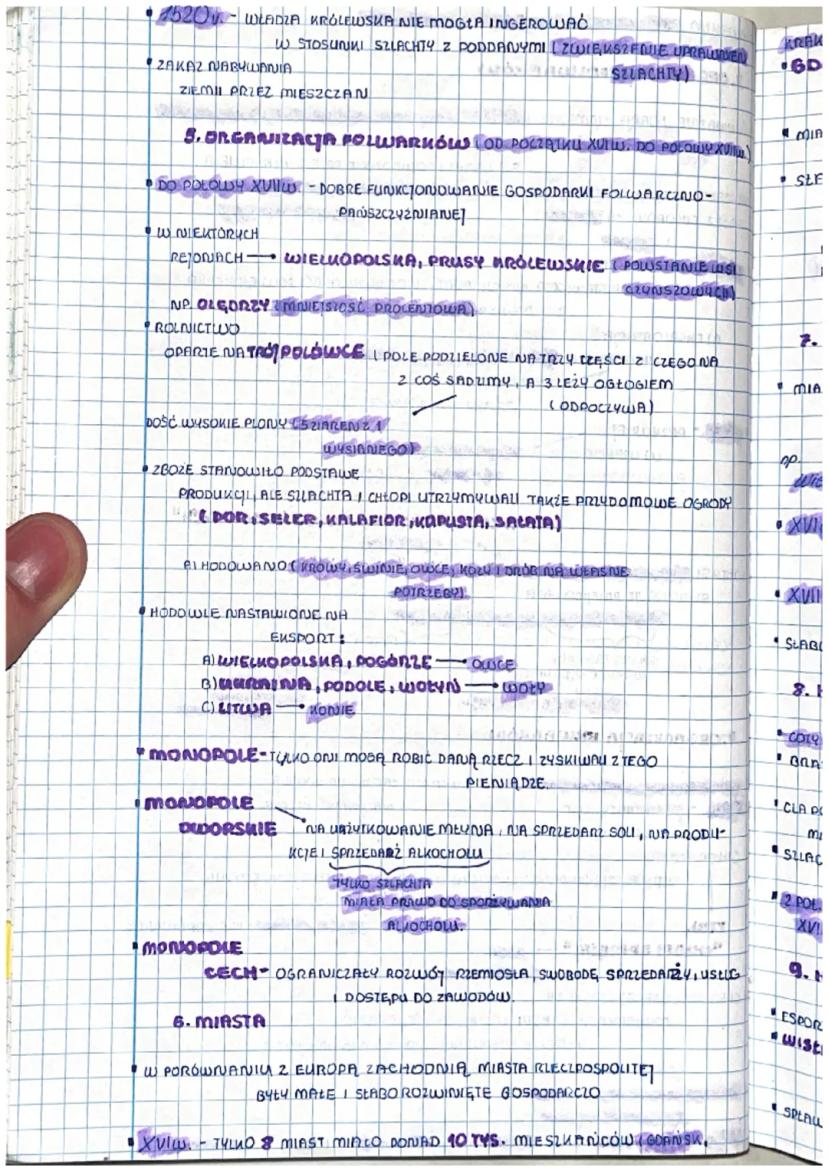 1520r. - WŁADZA KRÓLEWSKA NIE MOGŁA INGEROWAĆ
W STOSUNKI SZLACHTY Z PODDANYMI (ZWIĘKSZENIE UPRAWNIEŃ
SZLACHTY)
ZAKAZ NABYWANIA
ZIEMII PRZEZ MIESZCZAN
5. ORGANIZACJA FOLWARKÓW (OD POCZĄTKU XVI W. DO POŁOWY XVII W.)
DO POŁOWY XVII W. - DOBRE FUNKCJONOWANIE GOSPODARKI FOLWARCZNO-
PAŃSZCZYŹNIANEJ
W NIEKTÓRYCH
REJONACH → WIELKOPOLSKA, PRUSY KRÓLEWSKIE (POWSTANIE WSI
CZYNSZOWYCH)
NP. OLĘDRZY (MNIEJSZOŚĆ PROCENTOWA)
ROLNICTWO
OPARTE NA TRÓJPOLÓWCE (POLE PODZIELONE NA TRZY CZĘŚCI Z CZEGO NA
2 COŚ SADZIMY, A 3 LEŻY OGŁOGIEM
(ODPOCZYWA)
DOŚĆ WYSOKIE PLONY (5 ZIAREN Z 1
WYSIANEGO)
ZBOŻE STANOWIŁO PODSTAWE
PRODUKCJI, ALE SZLACHTA I CHŁOPI UTRZYMYWALI TAKŻE PRZYDOMOWE OGRODY
(POR, SELER, KALAFIOR, KAPUSTA, SAŁATA)
A) HODOWANO (KROWY, ŚWINIE, OWCE, KOZY I DRÓB NA WŁASNE
POTRZEBY)
HODOWLE NASTAWIONE NA
EKSPORT:
A) WIELKOPOLSKA, POGÓRZE → OWCE
B) UKRAINA, PODOLE, WOŁYŃ → WOŁY
C) LITWA → KONIE
MONOPOLE - TYLKO ONI MOGĄ ROBIĆ DANĄ RZECZ I ZYSKIWALI Z TEGO
PIENIĄDZE.
MONOPOLE
DWORSKIE NA UŻYTKOWANIE MŁYNA, NA SPRZEDARZ SOLI, NA PRODU-
KCJE I SPRZEDARŻ ALKOCHOLU
TYLKO SZLACHTA
MIAŁA PRAWO DO SPORZYWANIA
ALKOCHOLU.
MONOPOLE
CECH - OGRANICZAŁY ROZWÓJ RZEMIOSŁA, SWOBODĘ SPRZEDARŻY, USŁUG
I DOSTĘPU DO ZAWODÓW.
6. MIASTA
W PORÓWNANIU Z EUROPĄ ZACHODNIĄ MIASTA RZECZPOSPOLITEJ
BYŁY MAŁE I SŁABO ROZWINIĘTE GOSPODARCZO
XVI W. - TYLKO 8 MIAST MIAŁO PONAD 10 TYS. MIESZKAŃCÓW (GDAŃSK,
KRAK
GD
MIA
7.
MIA
np.
XVI
XVII
SŁAB
8.
BRA
CLA
SZLAC
2 POŁ.
XVI
9.
ESPOR
WISŁ
SPŁAW